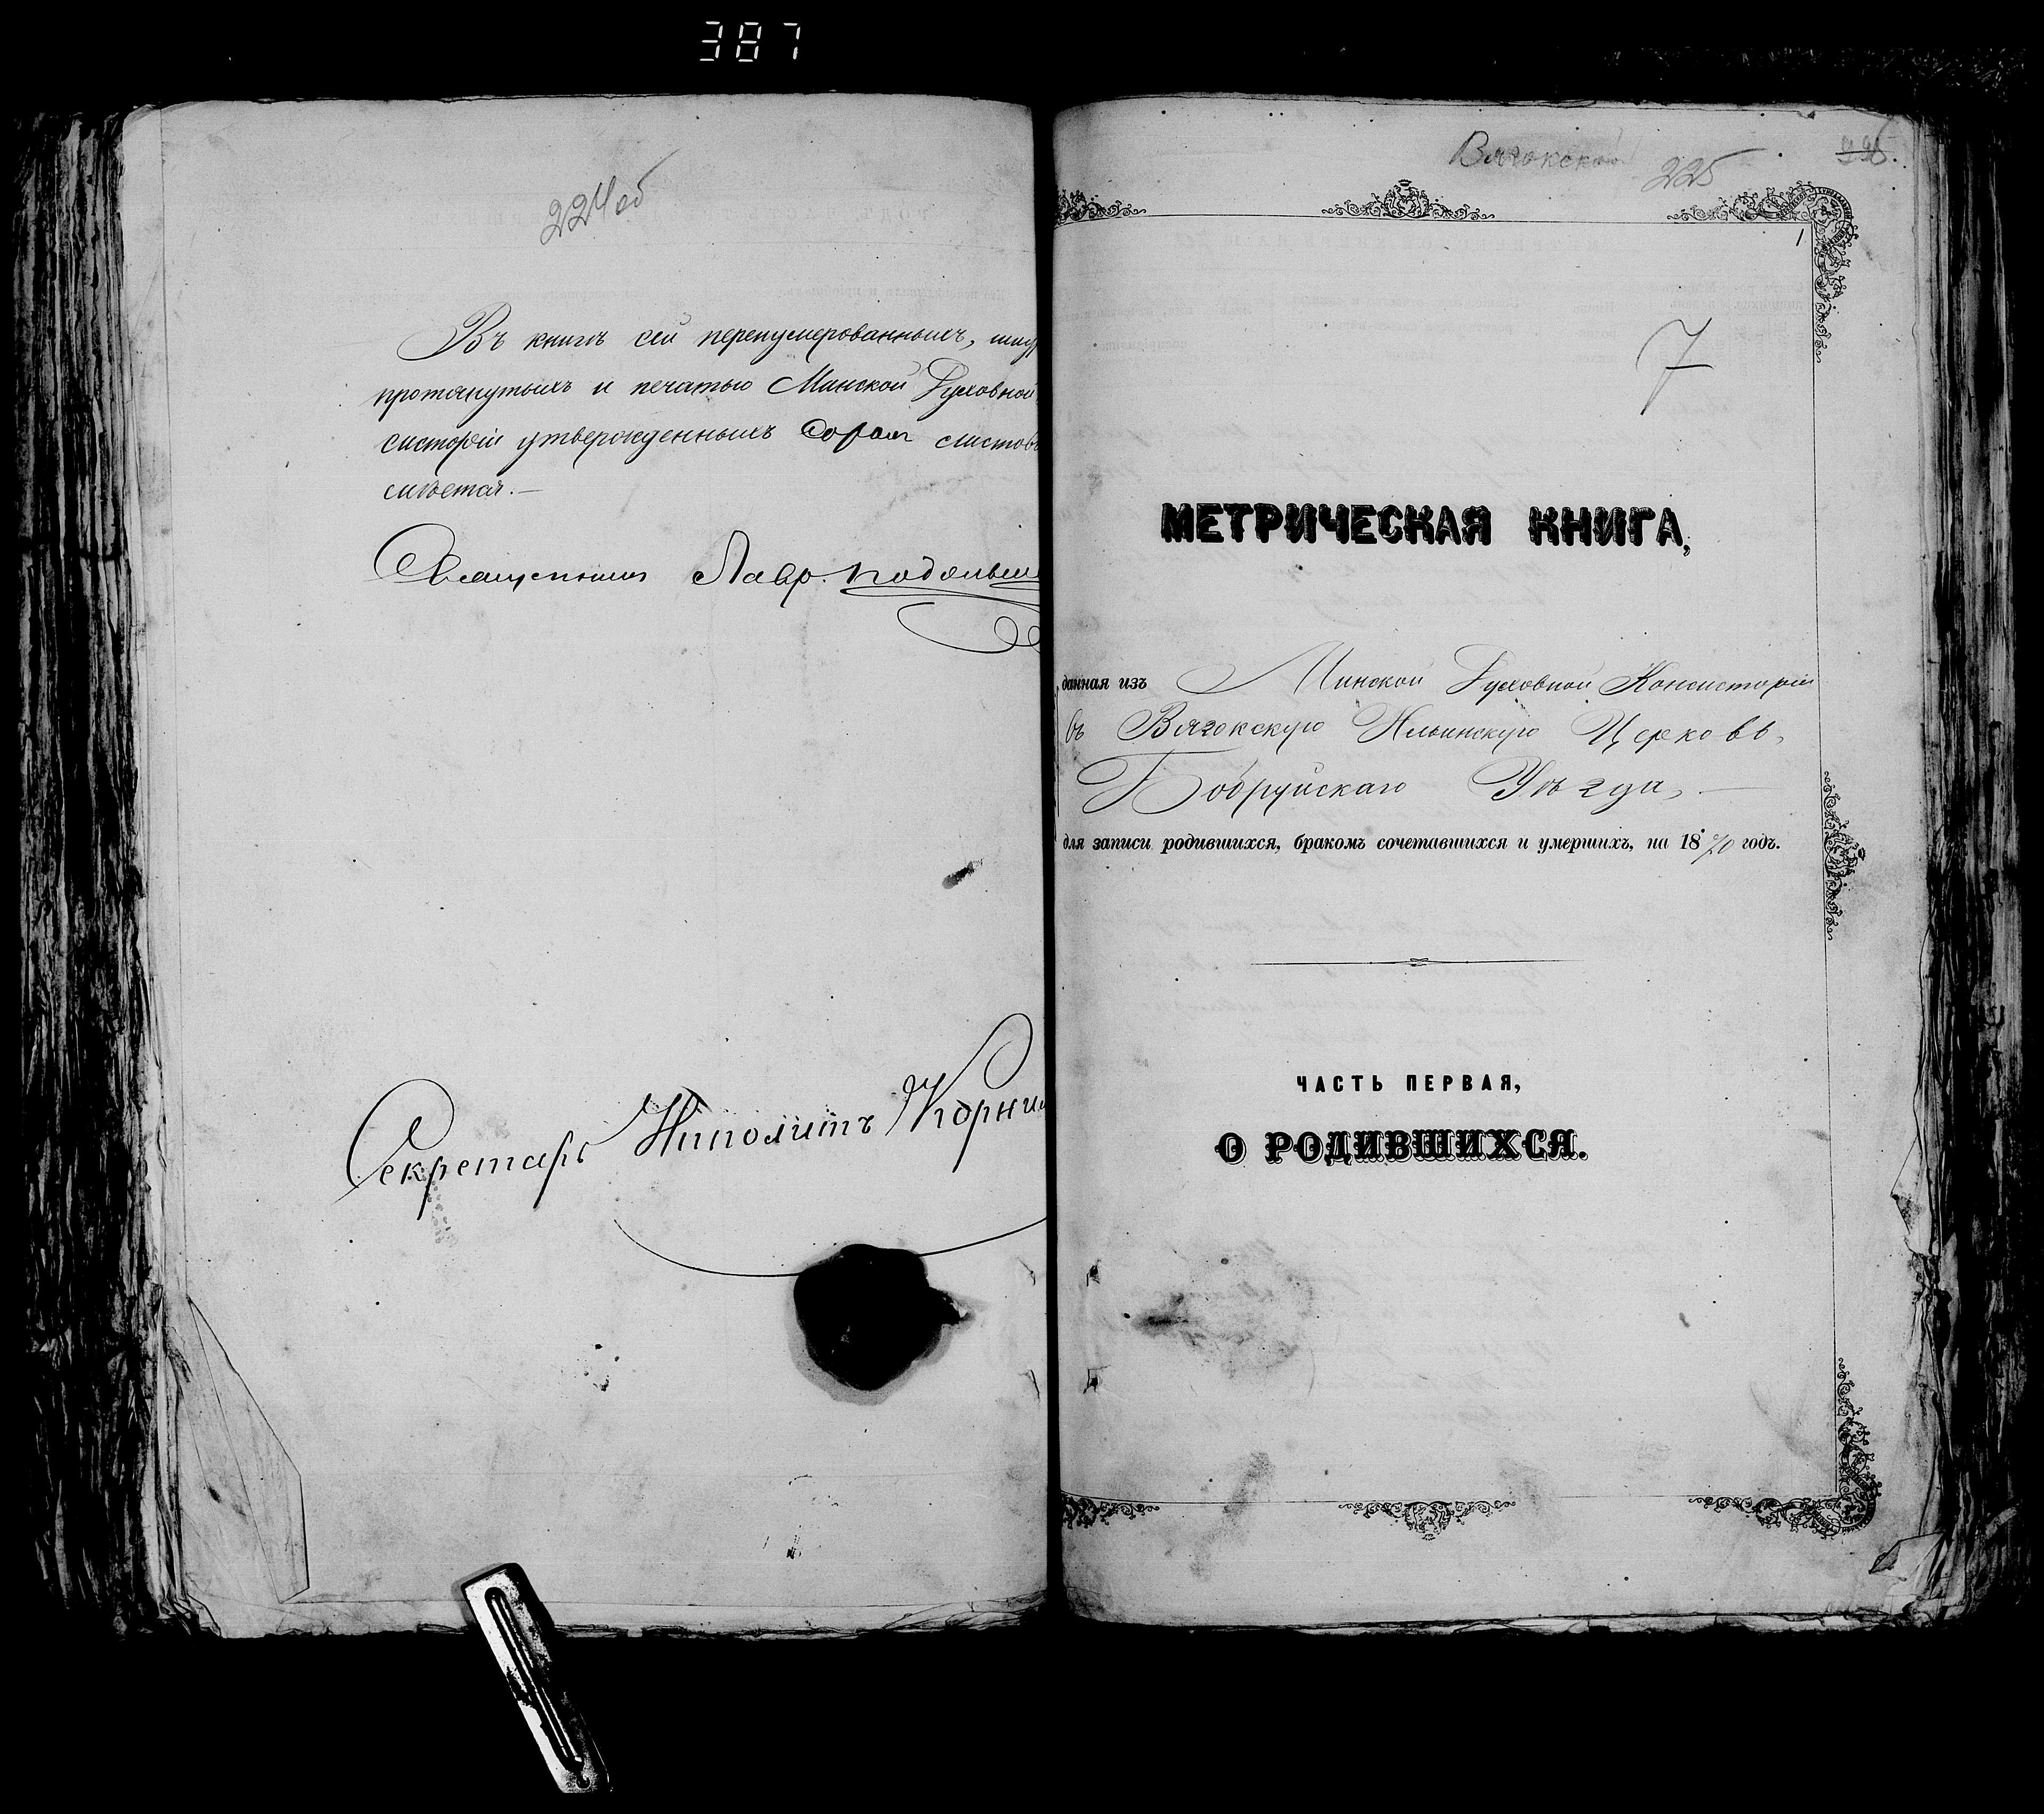 387
224об
Въ книгѣ сей перенумерованныхъ, шну
протянутыхъ и печатью Минской Духовной
систоріи утвержденныхъ сорокъ листовъ
имѣется.—
Священникъ Лавр.
Секретарь Ипполитъ Корни
Вягокской
225
1
7
МЕТРИЧЕСКАЯ КНИГА,
данная изъ Минской Духовной Консисторіи
въ Вягокскую Ильинскую Церковь,
Бобруйскаго Уѣзда,
для записи родившихся, бракомъ сочетавшихся и умершихъ, на 1870 годъ.
ЧАСТЬ ПЕРВАЯ,
О РОДИВШИХСЯ.